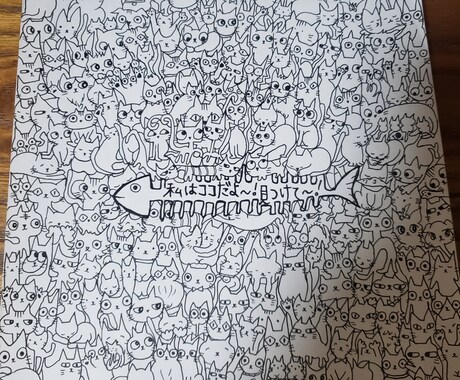 私はココだよ〜!見つけて〜